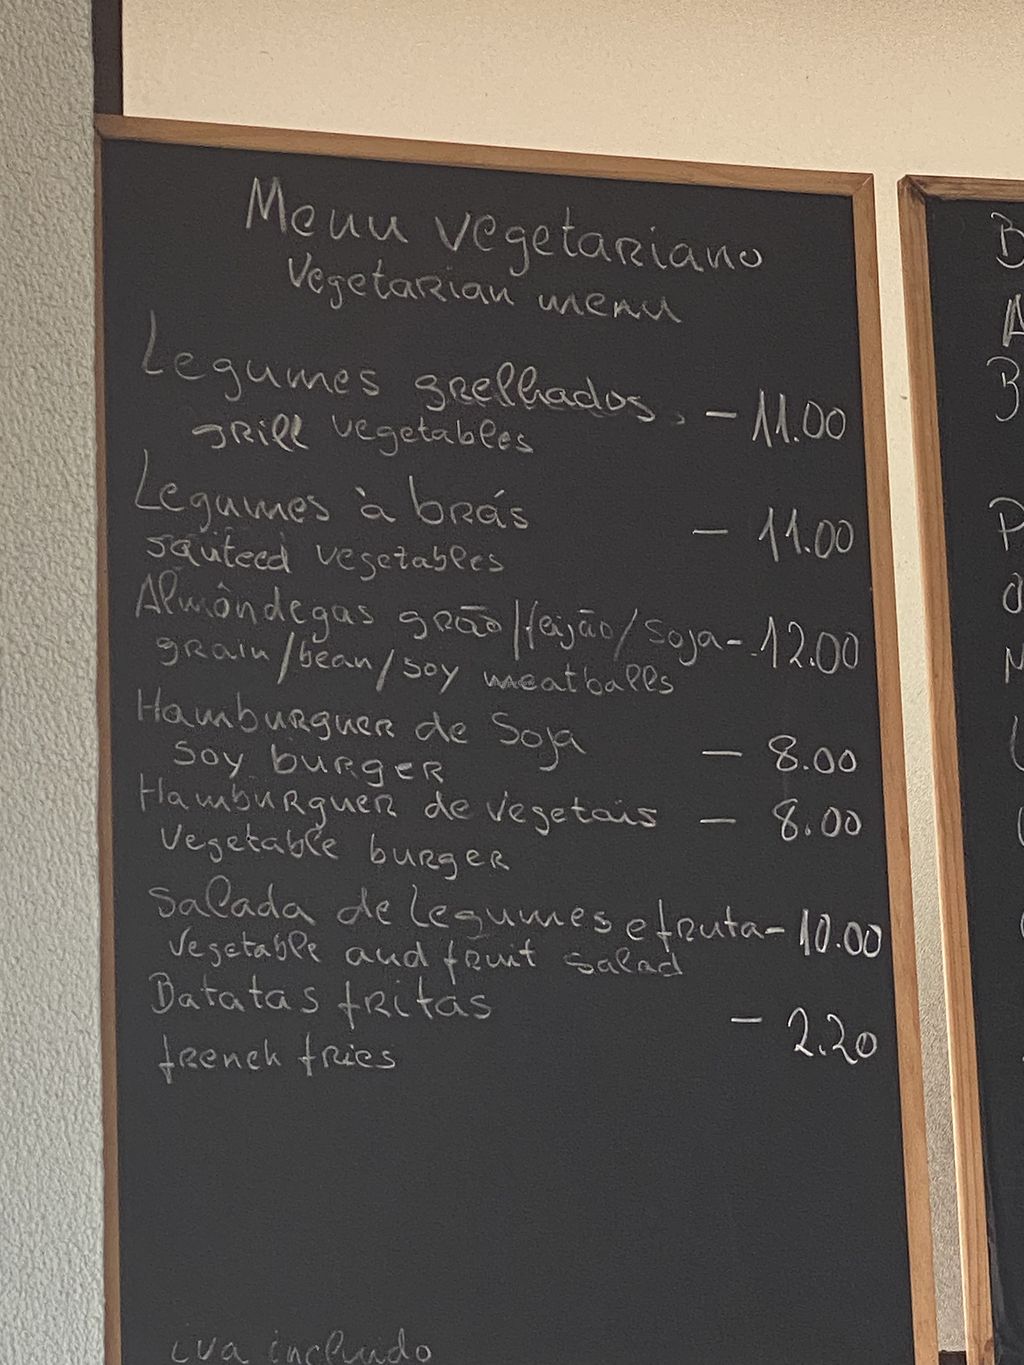 Menu vegetariano
Vegetarian menu
Legumes grelhados. - 11.00
grill vegetables
Legumes à brás - 11.00
sauteed vegetables
Almôndegas grão/feijão/soja - 12.00
grain/bean/soy meatballs
Hamburguer de Soja - 8.00
soy burger
Hamburguer de vegetais - 8.00
vegetable burger
salada de legumes e fruta - 10.00
vegetable and fruit salad
Batatas fritas - 2.20
french fries
iva incluido